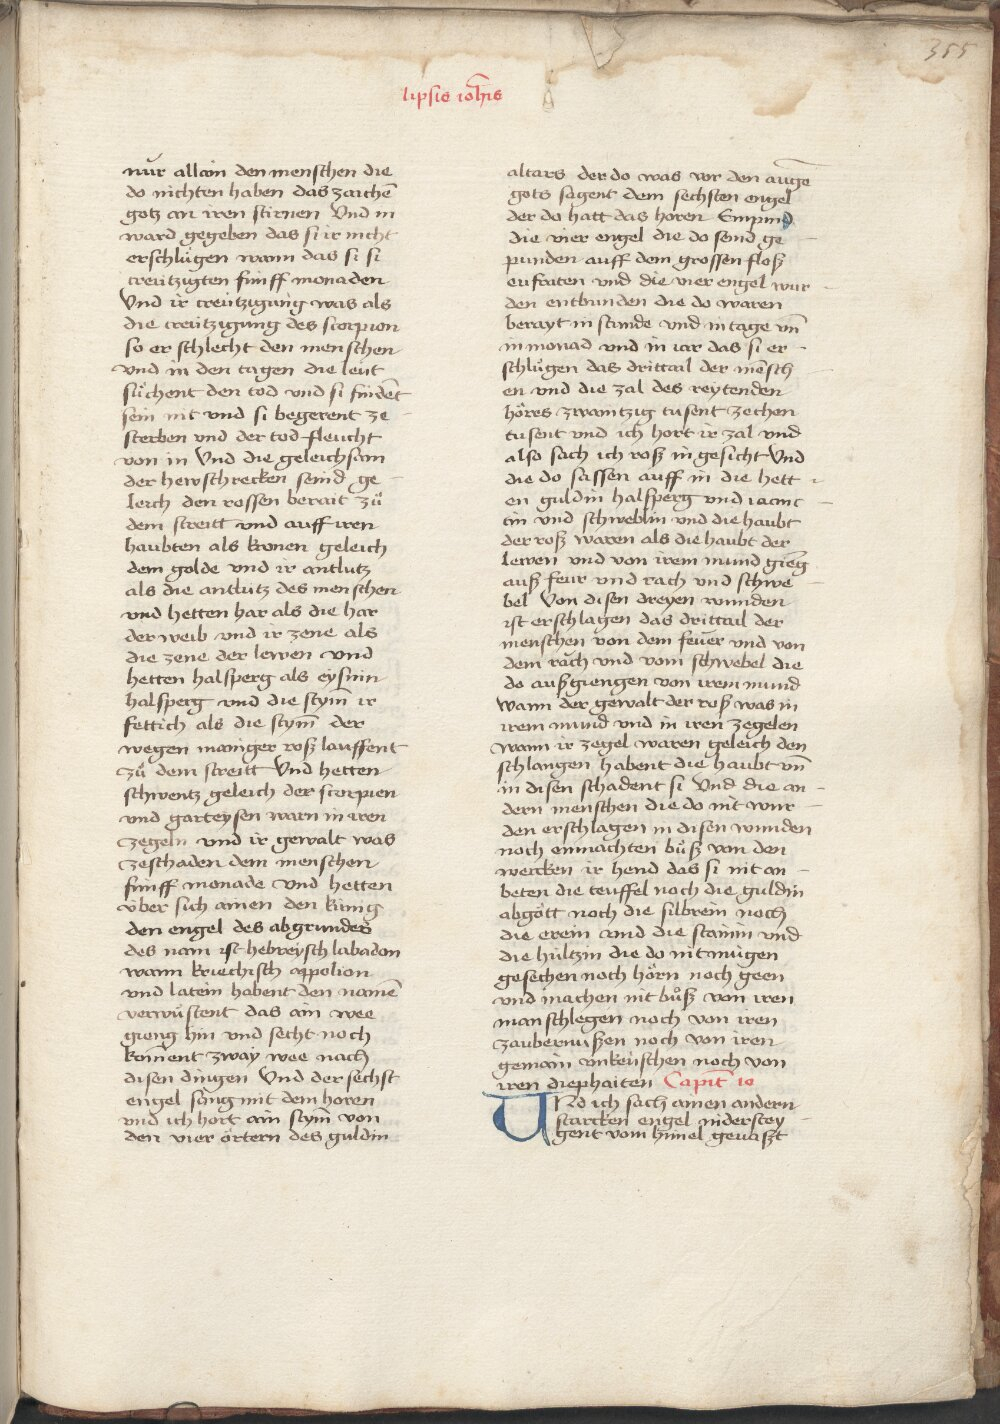 355
lipsis ioh̄is
nŭr allain den menschen die
do nichten haben das zaichē
gotz an iren stirnen Vnd in
ward gegeben das si ir nicht
erschlŭgen wann das si si
creŭtzigten fŭnff monaden
Vnd ir creŭtzigŭng was als
die creŭtzigung des scorpion
so er schlecht den menschen
vnd in den tagen die leŭt
sŭchent den tod vnd si findēt
sein nit vnd si begerent ze
sterben vnd der tod fleucht
von in Vnd die geleichsam
der hewschrecken seind ge
leich den rossen berait zů
dem streitt vnd auff iren
haubten als kronen geleich
dem golde vnd ir antlutz
als die antlutz des menschen
vnd hetten har als die har
der weib vnd ir zene als
die zene der lewen vnd
hetten halsperg als eysnin
halsperg vnd die stym̄ ir
fettich als die stym̄ der
wegen mainger roß lauffent
zů dem streitt Vnd hetten
schwentz geleich der scorpien
vnd garteysen warn in iren
zegeln vnd ir gewalt was
zeschaden dem menschen
fŭnff monade vnd hetten
v̈ber sich ainen den kŭnig
den engel des abgrundes
des nam ist hebreysch labadon
wann kriechisch appolion
vnd latein habent den namē
verwŭstent das ain wee
gieng hin vnd secht noch
kom̄ent zway wee nach
disen dingen Vnd der sechst
engel sang mit dem horen
vnd ich hort ain stym̄ von
den vier örtern des guldin
altars der do was vor den aŭgē
gots sagent dem sechsten engel
der do hatt das horen Empind
die vier engel die do send ge
punden auff dem grossen floß
eufraten vnd die vier engel wur
den entbunden die do waren
berayt in stunde vnd in tage vn̄
in monad vnd in iar das si er
schlůgen das drittail der mēsch
en vnd die zal des reytenden
höres zwaintzig tusent zechen
tusent vnd ich hort ir zal vnd
also sach ich roß in gesicht Vnd
die do sassen auff in die hett
en guldin halsperg vnd iacinc
tin vnd schweblin vnd die haubt
der roß waren als die haubt der
lewen vnd von irem mund gieng
auß feur vnd rach vnd schwe
bel Von disen dreyen wunden
ist erschlagen das drittail der
menschen von dem feŭer vnd von
dem rach vnd vom schwebel die
do außgiengen von irem mund
wann der gewalt der roß was in
irem mund vnd in iren zegelen
wann ir zegel waren geleich den
schlangen habent die haubt vn̄
in disen schadent si Vnd die an
dern menschen die do nit wur
den erschlagen in disen wunden
noch enmachten bůß von den
wercken ir hend das si nit an
beten die teuffel noch die guldin
abgött noch die silbrein noch
die erein vnd die stainin vnd
die hŭltzin die do nit mŭgen
gesechen noch hörn noch geen
vnd machen nit bůß von iren
manschlegen noch von iren
zaubernußen noch von iren
gemain vnkeŭschen noch von
iren diephaiten Capit̄ 10
Vnd ich sach ainen andern
starcken engel niderstey
gent vom him̄el gevaßt